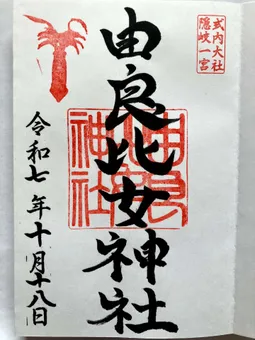 式内大社
隠岐一宮
由良比女神社
由良比女
神社
令和七年十月十八日